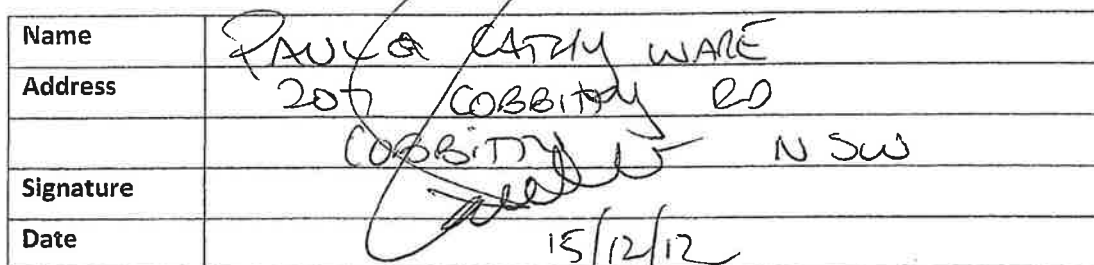 Name PAUL & CATHY WARE
Address 207 COBBITTY RD
COBBITTY NSW
Signature
Date 15/12/12